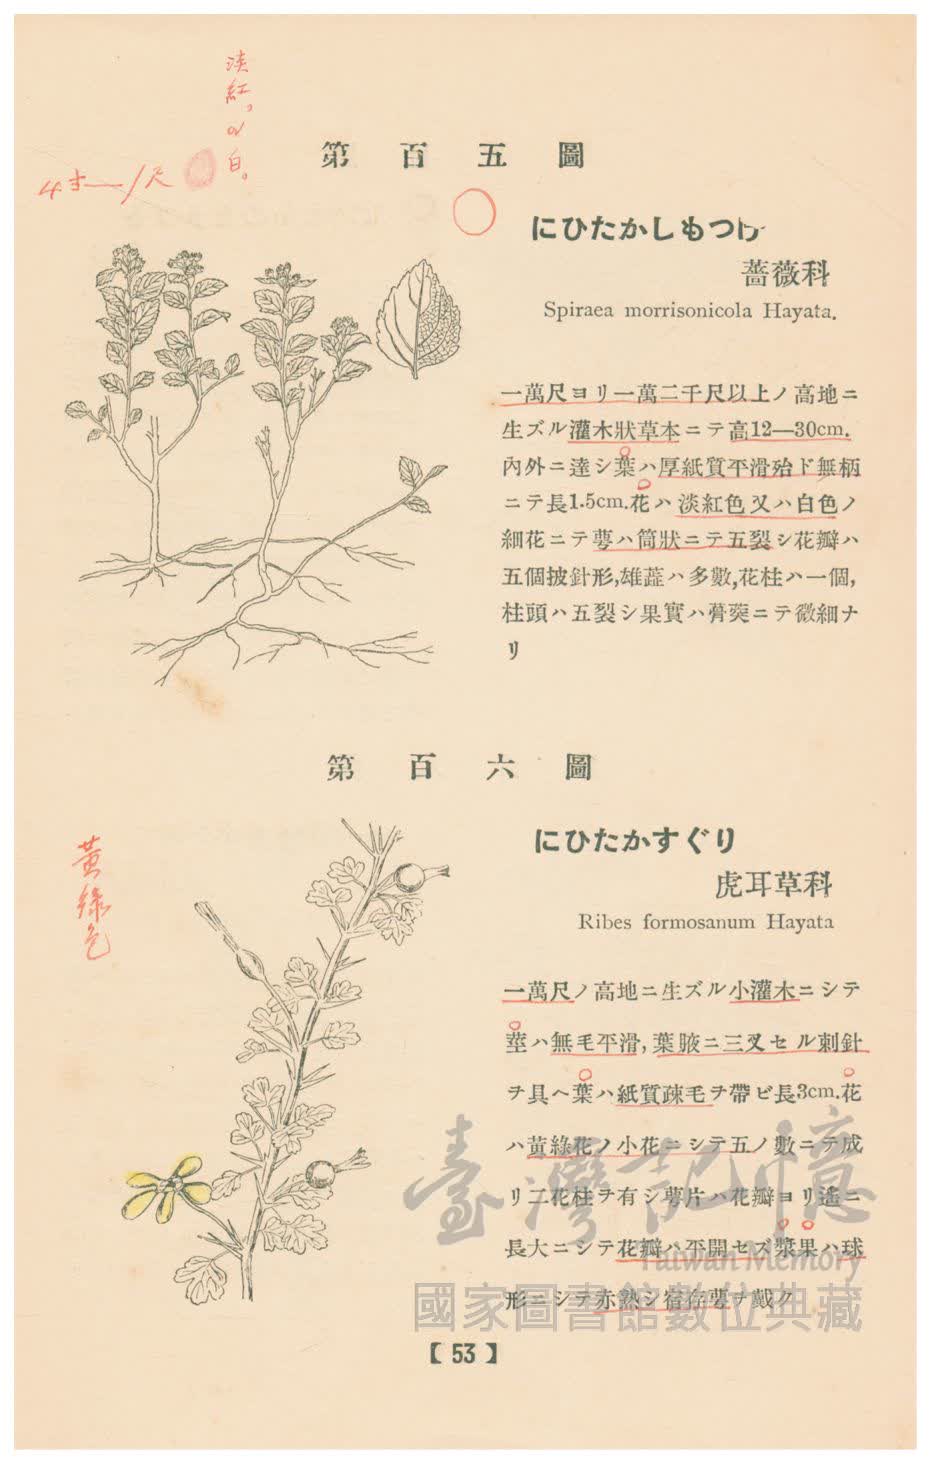 淡
紅,
or
白。
4寸—1尺
第百五圖
にひたかしもつけ
薔薇科
Spiraea morrisonicola Hayata.
一萬尺ヨリ一萬二千尺以上ノ高地ニ
生ズル灌木狀草本ニテ高12—30cm.
內外ニ達シ葉ハ厚紙質平滑殆ド無柄
ニテ長1.5cm.花ハ淡紅色又ハ白色ノ
細花ニテ萼ハ筒狀ニテ五裂シ花瓣ハ
五個披針形,雄蕋ハ多數,花柱ハ一個,
柱頭ハ五裂シ果實ハ膏葖ニテ微細ナ
リ
第百六圖
にひたかすぐり
虎耳草科
Ribes formosanum Hayata
黃
綠
色
一萬尺ノ高地ニ生ズル小灌木ニシテ
莖ハ無毛平滑,葉腋ニ三叉セル刺針
ヲ具ヘ葉ハ紙質疎毛ヲ帶ビ長3cm.花
ハ黃綠花ノ小花ニシテ五ノ數ニテ成
リ二花柱ヲ有シ萼片ハ花瓣ヨリ遙ニ
長大ニシテ花瓣ハ平開セズ漿果ハ球
形ニシテ赤熟シ宿存萼ヲ戴ク
臺灣記憶
Taiwan Memory
國家圖書館數位典藏
【53】